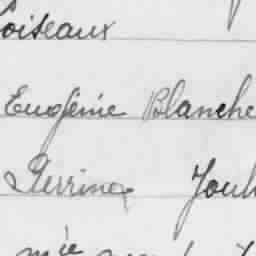 oiseaux
Eugénie Blanche
Perrine Jouh